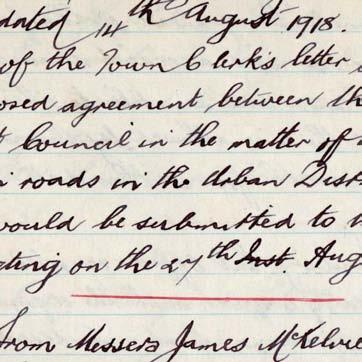 dated 14th August 1918.
of the Town Clerk's letter
osed agreement between th
Council in the matter of
roads in the Urban Dist
would be submitted to
ting on the 27th Inst. Aug
from Messers James McKelvie